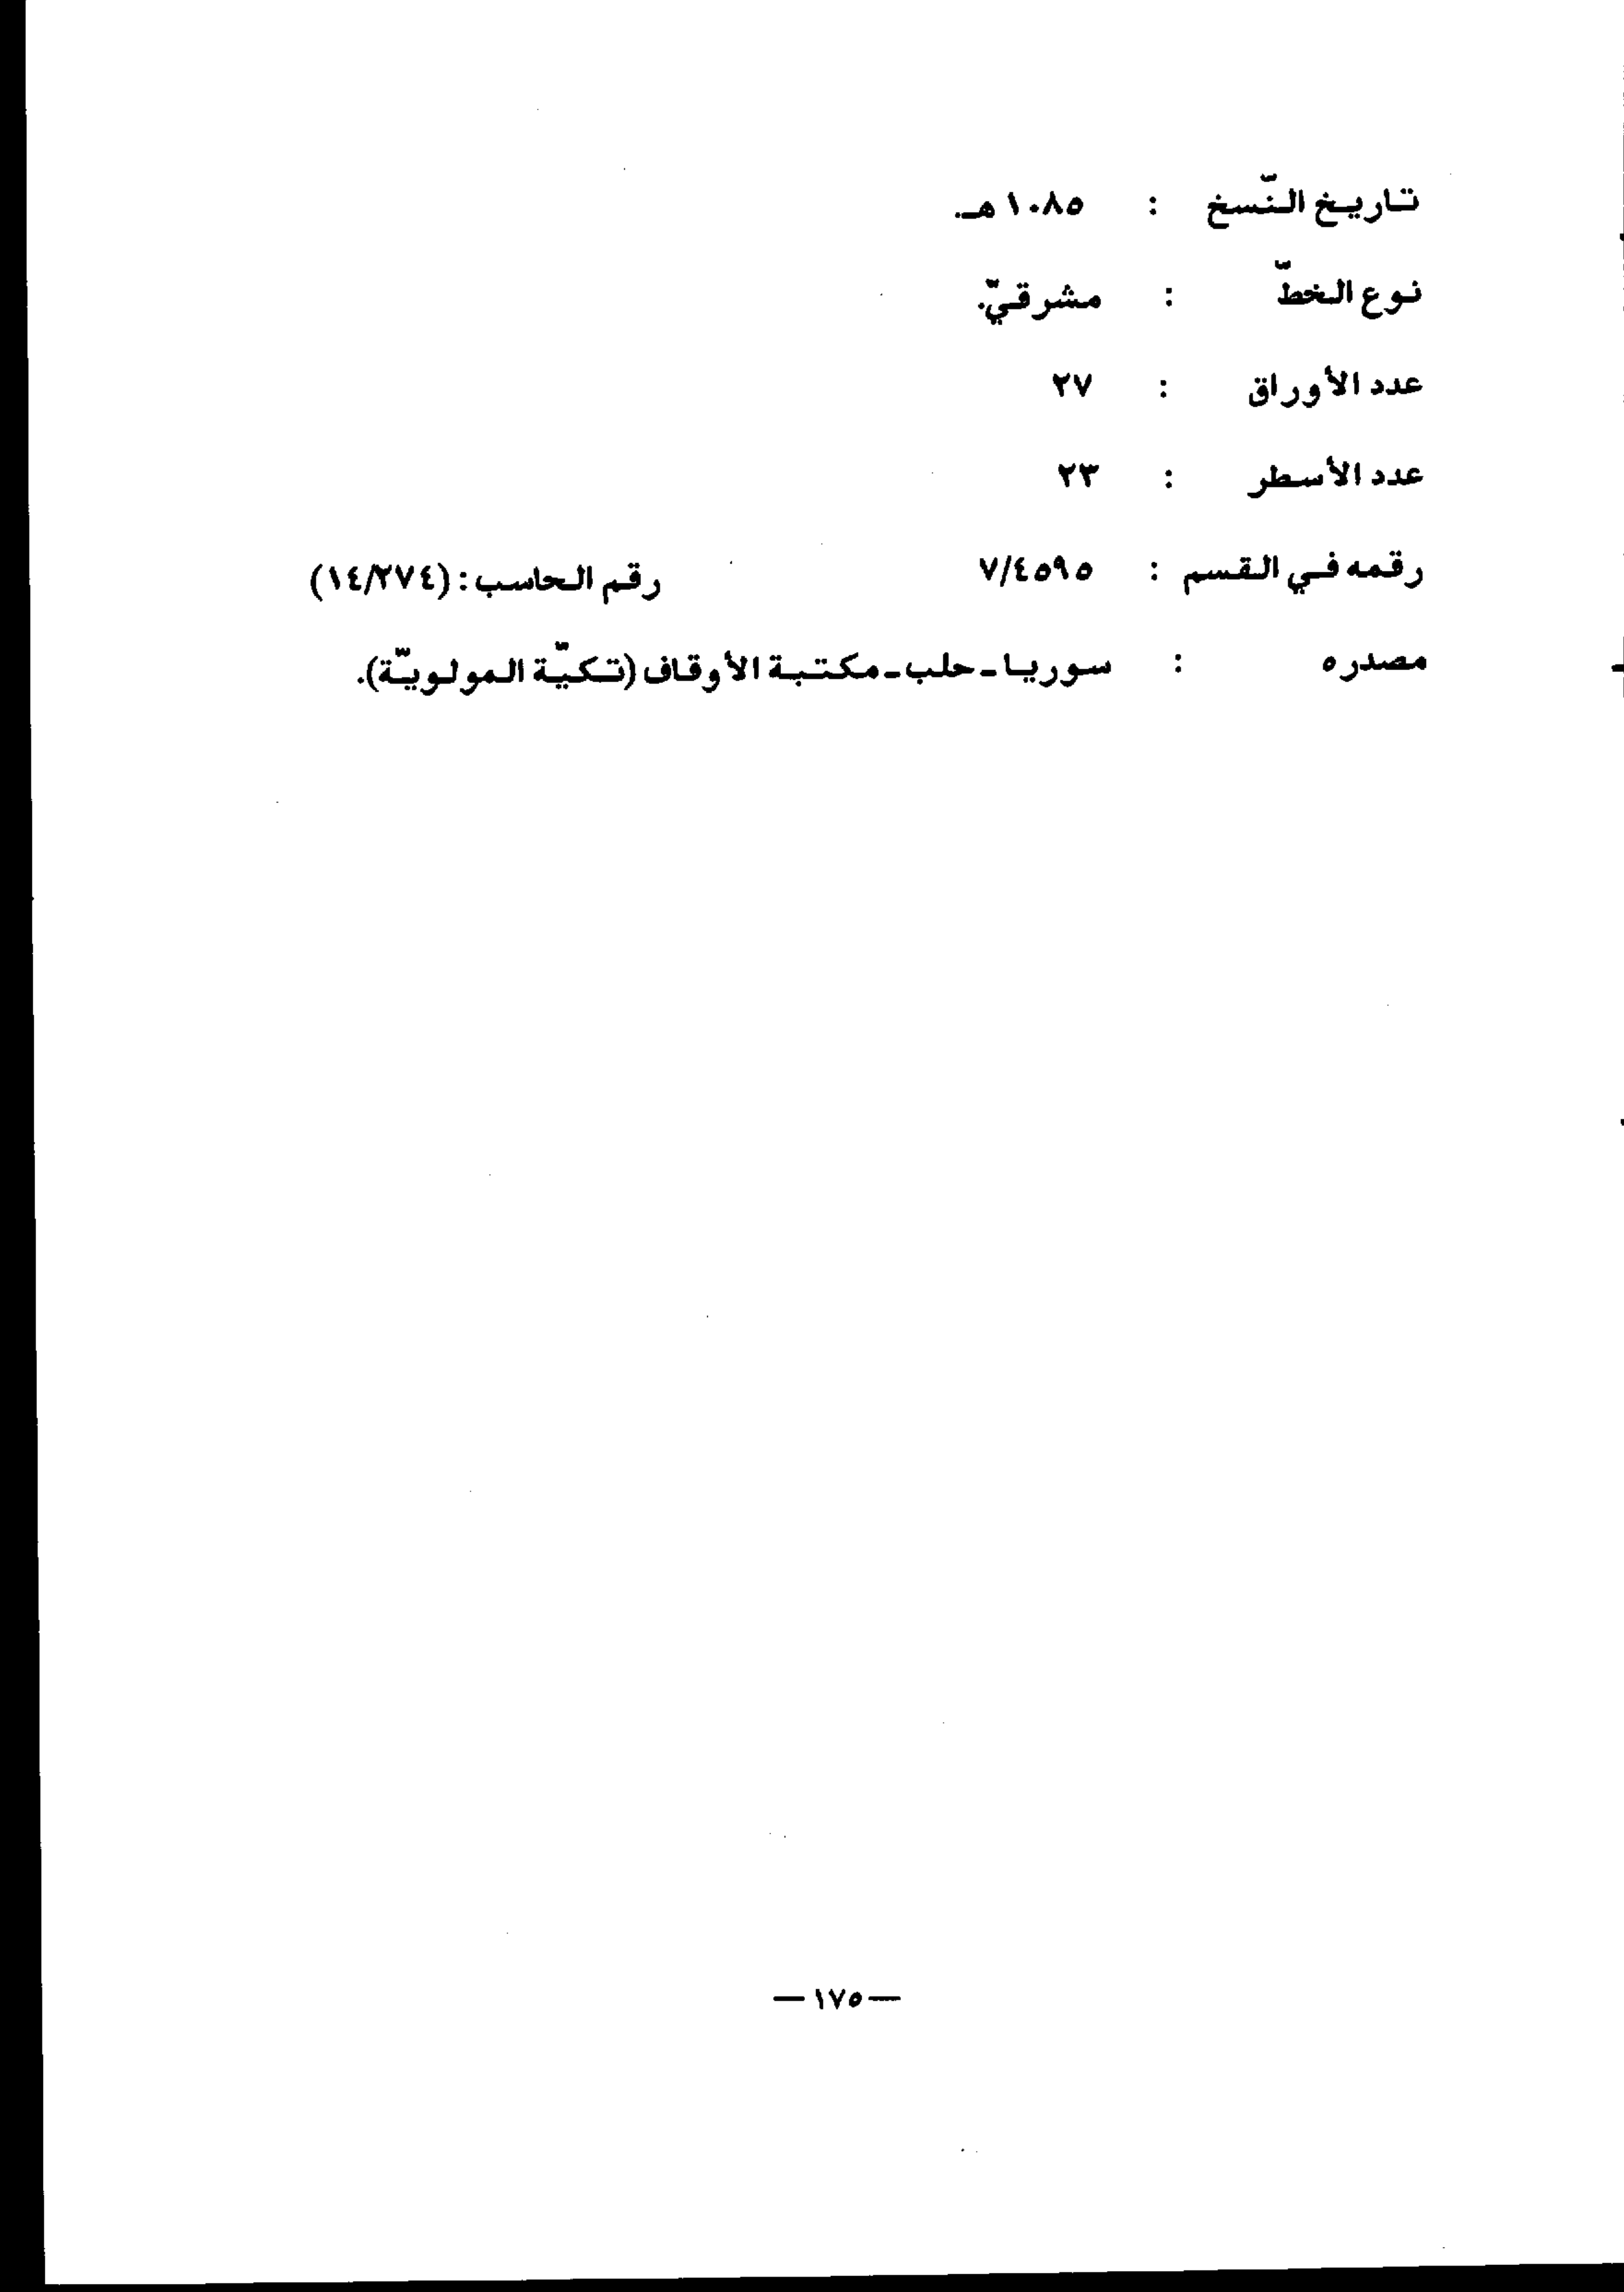 تاريخ النّسخ : ١٠٨٥ هـ.
نوع الخطّ : مشرقيّ.
عدد الأوراق : ٢٧
عدد الأسطر : ٢٣
رقمه في القسم : ٧/٤٥٩٥ رقم الحاسب : (١٤/٢٧٤)
مصدره : سوريا - حلب - مكتبة الأوقاف (تكيّة المولويّة).
— ١٧٥ —